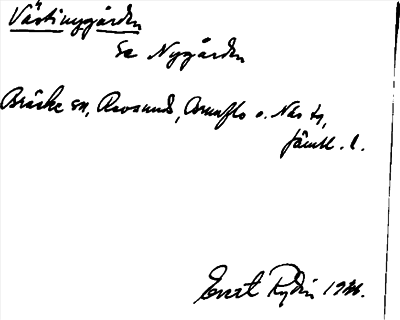 Västinygården
Se Nygården
Bräcke sn, Revsunds, Brunflo o. Näs tg,
Jämtl. l.
Evert Rydin 1946.